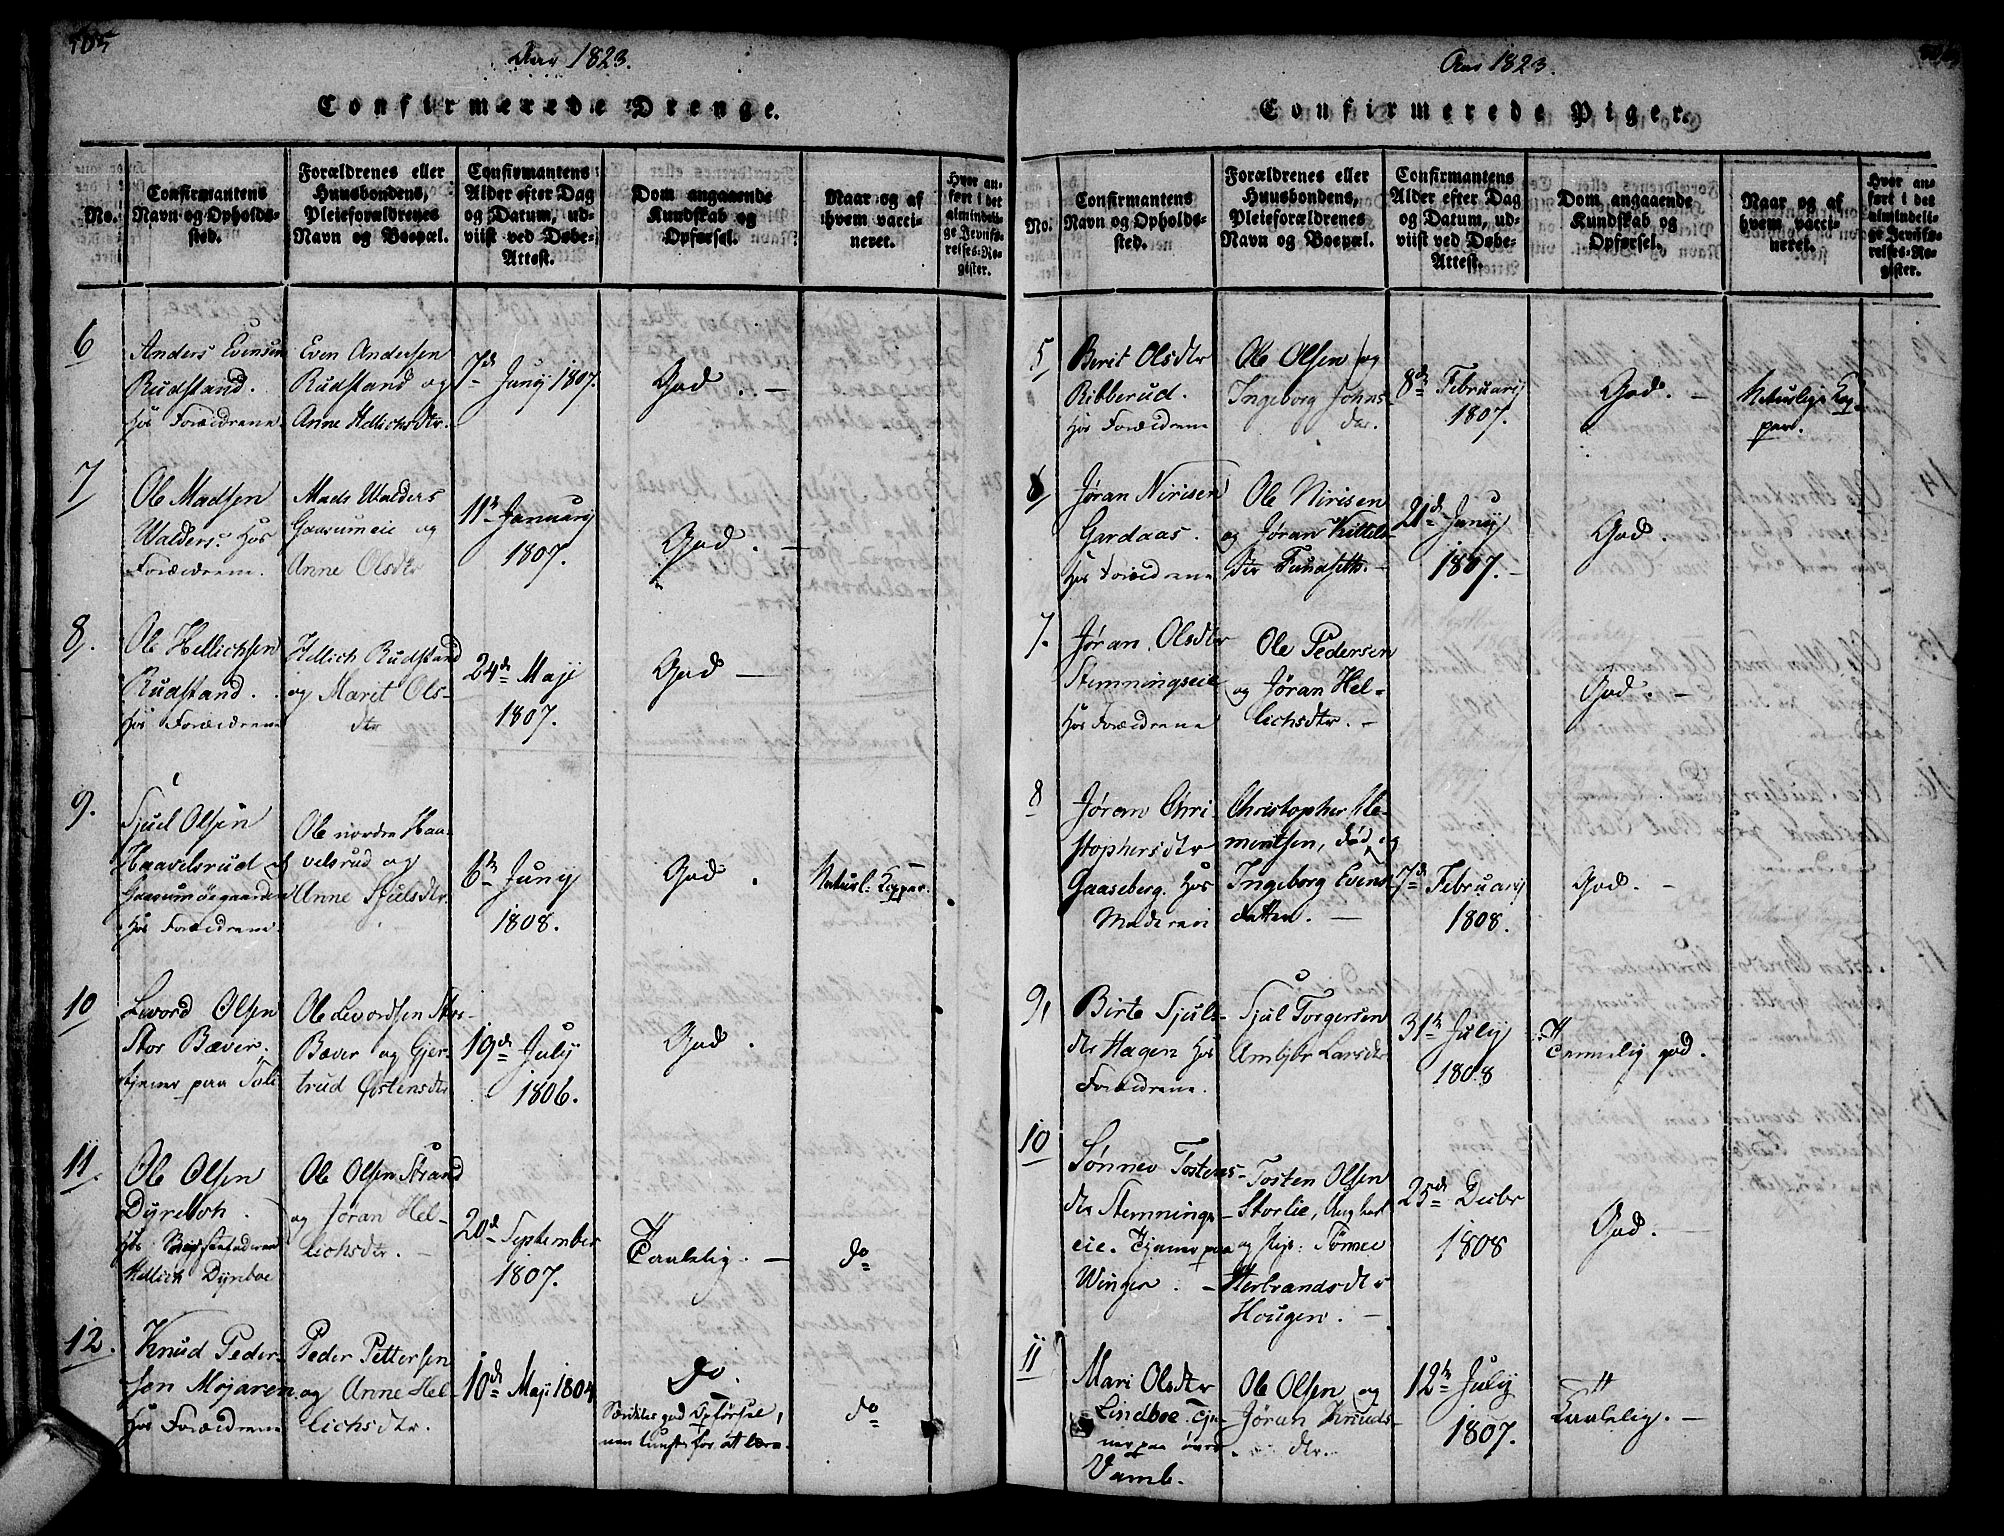 Aar 1823.
Confirmerede Drenge.
No.
Confirmantens Navn og Opholdssted.
Forældrenes eller Huusbondens, Pleieforældrenes Navn og Boepæl.
Confirmantens Alder efter Dag og Datum, udviist ved Døbe-Attest.
Dom angaaende Kundskab og Opførsel.
Naar og af hvem vaccineret.
Hvor anført i det almindelige Jevnførelses-Register.
6
Anders Evensen
Rudstand.
hos Forældrene
Even Andersen
Rudstand og
Anne Hellichsdtr.
7de Juny 1807.
God. —
7
Ole Madsen
Walders. hos
Forældrene.
Mads Walders
Gaarumeie og
Anne Olsdtr
11te Januarij
1807.
God. —
8.
Ole Hellichsen
Rudstand.
hos Forældrene
Hellich Rudstand
og Marit Ols-
dtr
24de Maji
1807.
God —
9.
Sjuel Olsen
Haavelsrud
hos Forældrene.
Ole nordre Haa-
velsrud og
Anne Sjulsdtr.
6te Juny
1808.
God.
Naturl: Kopper.
10
Levord Olsen
Stor Bæver.
tjener paa
Ole Levordsen Stor-
Bæver og Gjer-
trud Østensdtr
19de July
1806.
God.
11.
Ole Olsen
Dyreboh.
hos
Hellich Dyreboe
Ole Olsen Strand
og Jøran Hel-
lichsdtr. —
20de September
1807.
Taalelig. —
do
12.
Knud Peder-
sen Mojaren
hos Forældrene
Peder Pettersen
og Anne Hel-
lichsdtr.
10de Maji 1804
do.
Særdeles god Opførsel,
for at lære.
do
Aar 1823.
Confirmerede Piger.
No.
Confirmantens Navn og Opholdssted.
Forældrenes eller Huusbondens, Pleieforældrenes Navn og Boepæl.
Confirmantens Alder efter Dag og Datum, udviist ved Døbe-Attest.
Dom angaaende Kundskab og Opførsel.
Naar og af hvem vaccineret.
Hvor anført i det almindelige Jevnførelses-Register.
5
Berit Olsdtr
Ribberud.
hos Forældrene
Ole Olsen og
Ingeborg Johns-
dtr.
8de Februarij
1807.
God. —
Naturlige Kop-
per.
6
Jøran Nirisen
Gardaas.
hos Forældrene
Ole Nirisen
og Jøran Kittils-
dtr Tundseth. —
21de Juny
1807. —
God.
7.
Jøran Olsdtr
Stemningseie
hos Forældrene
Ole Pedersen
og Jøran Hel-
lichsdtr. —
God. —
8
Jøran Chri-
stophersdtr
Gaaseberg. hos
Moderen
Christopher Kle-
mentsen, død, og
Ingeborg Evens-
datter. —
7de Februarij
1808.
God. —
9,
Birte Sjuls-
dtr Hagen hos
Forældrene.
Sjul Torgersen
Ambjør Larsdtr
31te July
1808
Temmelig god.
10
Sønnev Tostens-
dtr Stemnings-
eie. Tjener paa
Winger. —
Tosten Olsen
Storlie, Ungkarl
og Pige: Sønnev
Herbrandsdtr
Hougen. —
25de Decbr
1808
God. —
11
Mari Olsdtr
Lindboe. Tje-
ner paa øvre
Vamb.
Ole Olsen og
Jøran Knuds-
dtr.
12te July
1807.
Taalelig. —